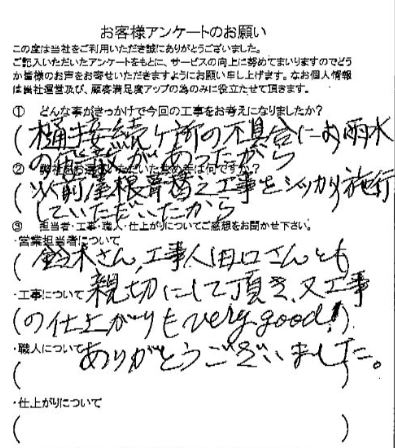 お客様アンケートのお願い
この度は当社をご利用いただき誠にありがとうございました。
ご記入いただいたアンケートをもとに、サービスの向上に努めてまいりますのでどう
か皆様のお声をお寄せいただきますようにお願い申し上げます。なお個人情報
は当社運営及び、顧客満足度アップの為のみに役立たせて頂きます。
① どんな事がきっかけで今回の工事をお考えになりましたか?
(樋接続ケ所の不具合にお雨水
の飛散があったから
② 弊社をお選びいただいた決め手は何ですか?
(以前屋根葺替え工事をシッカリ施行
していただいたから
③ 担当者・工事・職人・仕上がりについてご感想をお聞かせ下さい。
・営業担当者について
(鈴木さん、工事人田口さんとも
・工事について 親切にして頂き、又工事
(の仕上がりもvery good!)
・職人について ありがとうございました。
( )
・仕上がりについて
( )